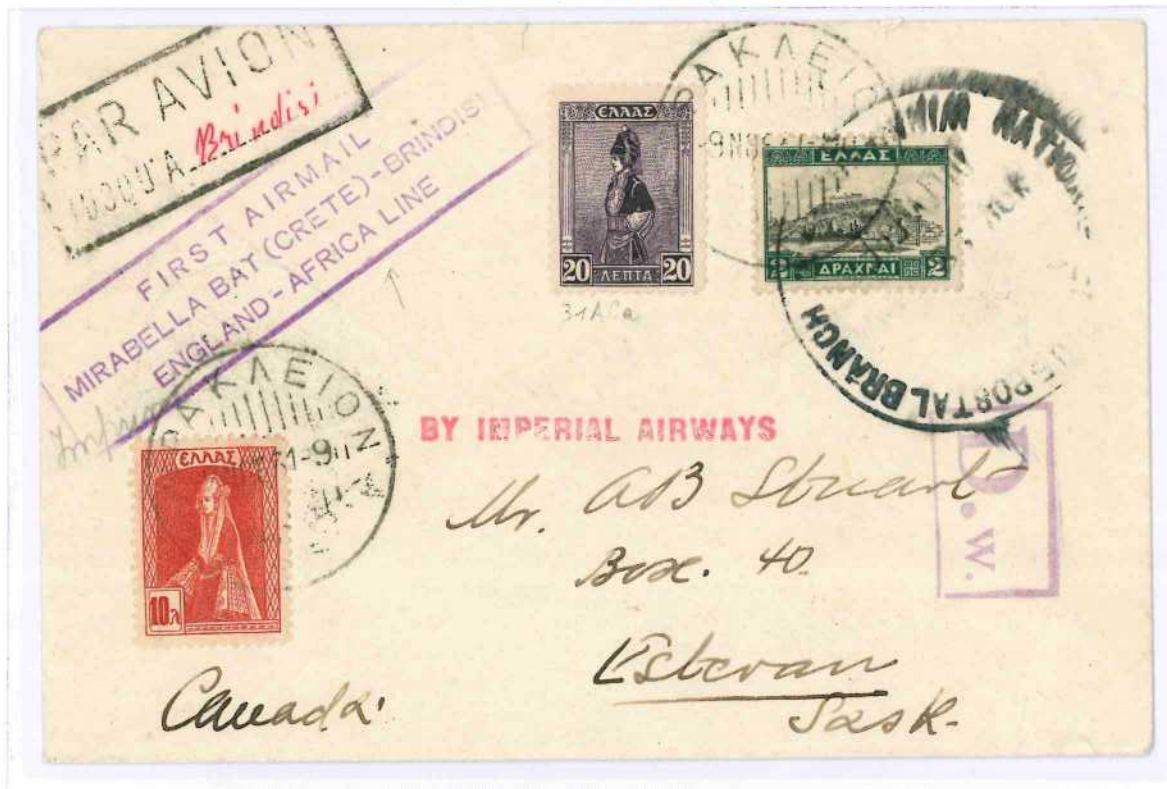 PAR AVION
JUSQU'A Brindisi
FIRST AIRMAIL
MIRABELLA BAY (CRETE)-BRINDISI
ENGLAND-AFRICA LINE
ΕΛΛΑΣ
20 ΛΕΠΤΑ 20
31ACa
ΡΑΚΛΕΙΟ
ΕΛΛΑΣ
2 ΔΡΑΧΜΑΙ 2
POSTAL BRANCH
ΡΑΚΛΕΙΟΝ
31-9
ΕΛΛΑΣ
10λ
BY IMPERIAL AIRWAYS
D.W.
Mr. AB Stuart
Box. 40.
Estevan
Sask.
Canada.